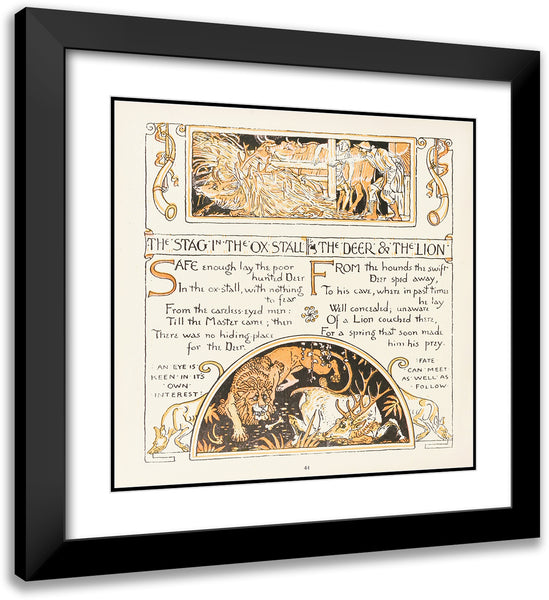 THE STAG IN THE OX STALL THE DEER & THE LION
SAFE enough lay the poor
hunted Deer
In the ox-stall, with nothing
to fear
From the careless-eyed men:
Till the Master came; then
There was no hiding place
for the Deer.
AN EYE IS
KEEN IN ITS
OWN
INTEREST
FROM the hounds the swift
Deer sped away,
To his cave, where in past times
he lay
Well concealed; unaware
Of a Lion couched there,
For a spring that soon made
him his prey.
FATE
CAN MEET
AS WELL AS
FOLLOW
44